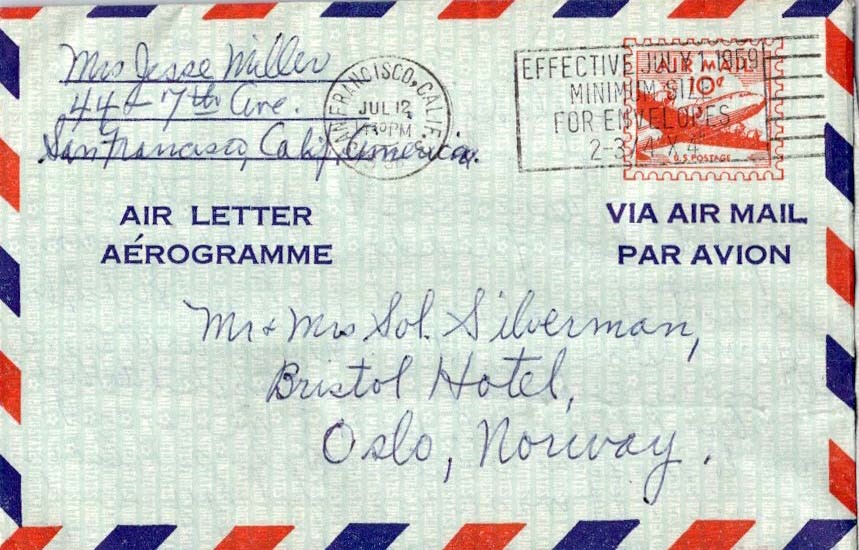 Mrs Jesse Miller
442 7th Ave.
San Francisco, Calif, America.
SAN FRANCISCO, CALIF.
JUL 12
PM
EFFECTIVE JULY 1 1959
MINIMUM SIZE
FOR ENVELOPES
2-3/4 X 4"
AIR MAIL
10¢
U.S. POSTAGE
AIR LETTER
AÉROGRAMME
VIA AIR MAIL
PAR AVION
Mr & Mrs Sol. Silverman,
Bristol Hotel,
Oslo, Norway.